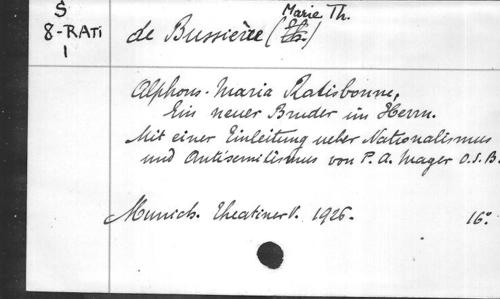 S
8-RATI
1
de Bussière (Marie Th.)
Alphons-Maria Ratisbonne,
Ein neuer Bruder im Herrn.
Mit einer Einleitung ueber Nationalismus
und Antisemitismus von P. A. Mager O.S.B.
Munich. Theatiner V. 1926. 16°